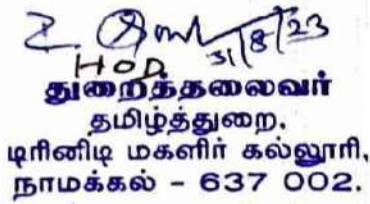 31/8/23
HOD
துறைத்தலைவர்
தமிழ்த்துறை,
டிரினிடி மகளிர் கல்லூரி,
நாமக்கல் - 637 002.